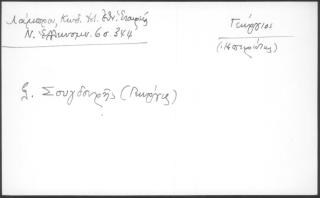 Λάμπρου, Κωδ. Ἱστ. Ἐθν. Ἑταιρείας
Ν. Ἑλληνομν. 6 σ 344
Γεώργιος
(Ἠπειρώτης)
Σουγδουρῆς (Γεώργιος)